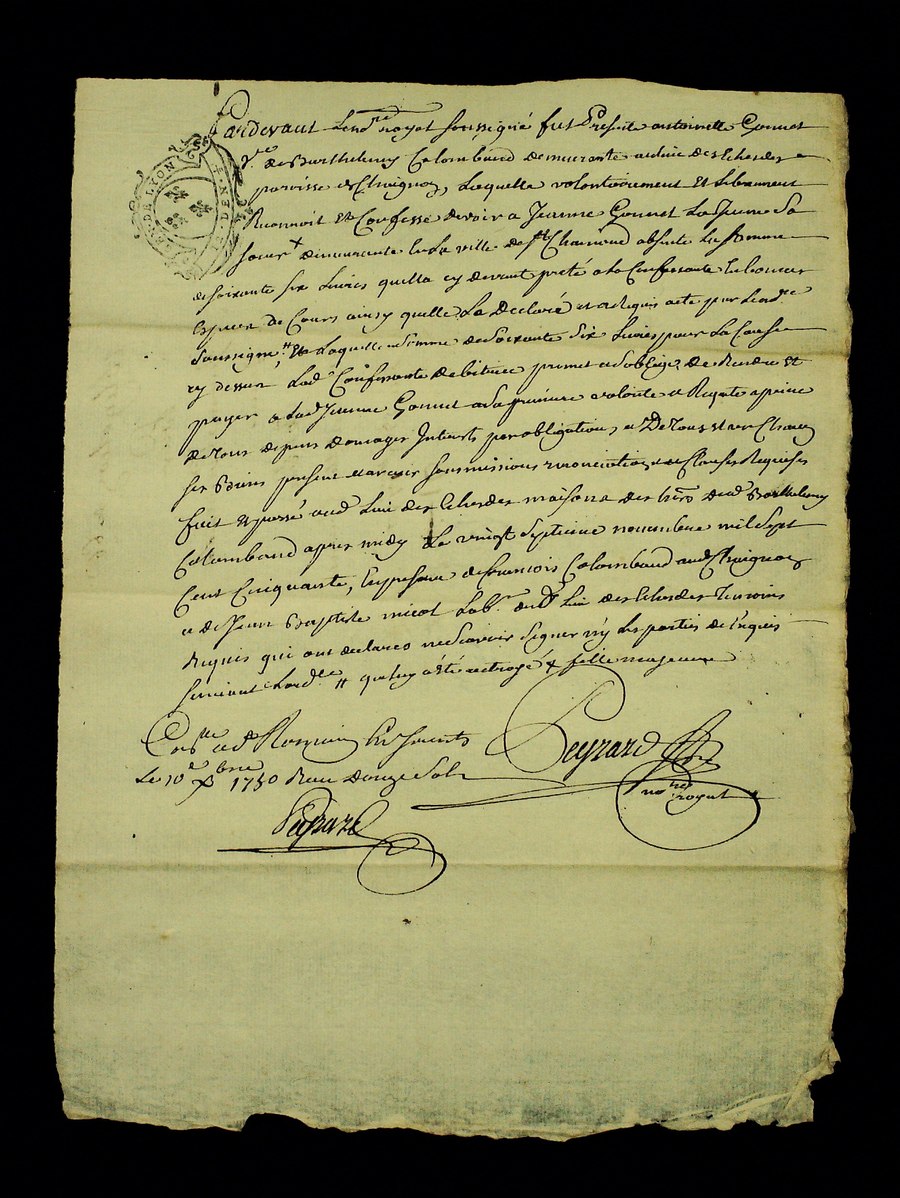 GEN. DE LYON
Pardevant Le no.re royal soussigné fut Presente antoinette Gonnet
v.e de Barthelemy Colombaud demeurante au lieu des Echerdes
parroisse de Chuignos, Laquelle volontairement et Librement
Reconnoit Et Confesse devoir a Jeanne Gonnet La Jeune Sa
Soeur + demeurante En La ville de S.t Chamond absente La somme
de soixante six Livres quella cy devant preté a la Confessante En bonnes
Especes de Cours ainsy quelle La Declaré et a Requis acte par Le no.re
Soussigné, Laquelle Somme de Soixante Six Livres pour La Cause
cy dessus Lad. Confessante debitrice promet et s'oblige de Rendre Et
payer a Lad. Jeanne Gonnet a Sa premiere volonté et Requete a peine
de Tous depens domages Interets par obligation, de Tous et un Chacun
Ses Biens presents et avenir soumissions renonciations et Clauses Requises
fait et passé aud. Lieu des Echerdes maison des h.rs dud. Barthelemy
Colombaud apres midy Le vingt Septieme novembre mil Sept
Cent Cinquante, En presence de françois Colombaud dud. Chuignos
et de Jean Baptiste micol Lab.r dud. Lieu des Echerdes Temoins
Requis qui ont declarés ne Scavoir Signer n'y Les parties de ce enquis
suivant Lord.ce + fille majeure
Con.lle a S.t Romain En
Le 10.e Xbre 1750 Reçu douze Sols
Peyrard
no.re royal
Peyrard